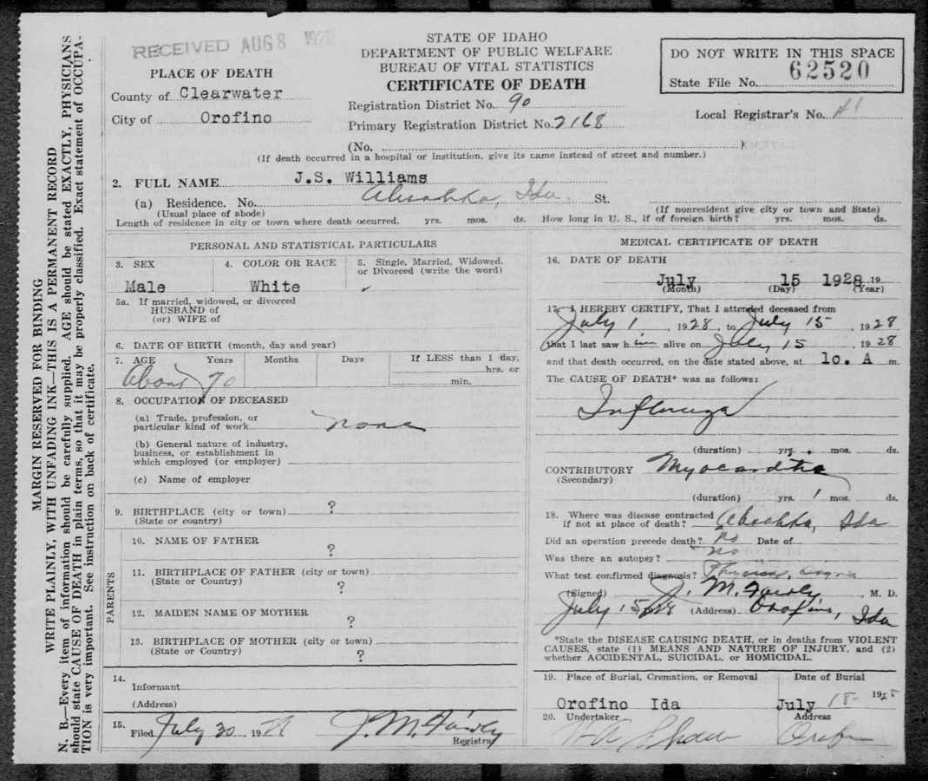 RECEIVED AUG 8
STATE OF IDAHO
DEPARTMENT OF PUBLIC WELFARE
BUREAU OF VITAL STATISTICS
CERTIFICATE OF DEATH
DO NOT WRITE IN THIS SPACE
State File No. 62520
PLACE OF DEATH
County of Clearwater
City of Orofino
Registration District No. 90
Primary Registration District No. 2168
Local Registrar's No.
(No.
(If death occurred in a hospital or institution, give its name instead of street and number.)
2. FULL NAME J.S. Williams
(a) Residence. No. Ahsahka, Ida. St.
(Usual place of abode)
(If nonresident give city or town and State)
Length of residence in city or town where death occurred. yrs. mos. ds. How long in U. S., if of foreign birth? yrs. mos. ds.
PERSONAL AND STATISTICAL PARTICULARS
3. SEX
Male
4. COLOR OR RACE
White
5. Single, Married, Widowed, or Divorced (write the word)
5a. If married, widowed, or divorced
HUSBAND of
(or) WIFE of
6. DATE OF BIRTH (month, day and year)
7. AGE Years Months Days If LESS than 1 day,
hrs. or
min.
About 70
8. OCCUPATION OF DECEASED
(a) Trade, profession, or
particular kind of work none
(b) General nature of industry,
business, or establishment in
which employed (or employer)
(c) Name of employer
9. BIRTHPLACE (city or town) ?
(State or country)
PARENTS
10. NAME OF FATHER
?
11. BIRTHPLACE OF FATHER (city or town)
(State or Country) ?
12. MAIDEN NAME OF MOTHER
?
13. BIRTHPLACE OF MOTHER (city or town)
(State or Country) ?
14.
Informant
(Address)
15.
Filed July 30, 19 J. M. Fairly
Registrar
MEDICAL CERTIFICATE OF DEATH
16. DATE OF DEATH
July 15 1928 19
(Month) (Day) (Year)
17. I HEREBY CERTIFY, That I attended deceased from
July 1, 1928, to July 15, 1928
that I last saw him alive on July 15 1928
and that death occurred, on the date stated above, at 10. A m.
The CAUSE OF DEATH* was as follows:
Influenza
(duration) yrs. mos. ds.
CONTRIBUTORY Myocarditis
(Secondary)
(duration) yrs. 1 mos. ds.
18. Where was disease contracted
if not at place of death? Ahsahka, Ida
Did an operation precede death? No Date of
Was there an autopsy? No
What test confirmed diagnosis? Physical
(Signed) J. M. Fairly M. D.
July 15, 28 (Address) Orofino, Ida
*State the DISEASE CAUSING DEATH, or in deaths from VIOLENT
CAUSES, state (1) MEANS AND NATURE OF INJURY, and (2)
whether ACCIDENTAL, SUICIDAL, or HOMICIDAL.
19. Place of Burial, Cremation, or Removal Date of Burial
Orofino Ida July 18- 19
20. Undertaker Address
Shaw Orofino
MARGIN RESERVED FOR BINDING
WRITE PLAINLY, WITH UNFADING INK—THIS IS A PERMANENT RECORD
N. B.—Every item of information should be carefully supplied. AGE should be stated EXACTLY, PHYSICIANS
should state CAUSE OF DEATH in plain terms, so that it may be properly classified. Exact statement of OCCUPA-
TION is very important. See instruction on back of certificate.